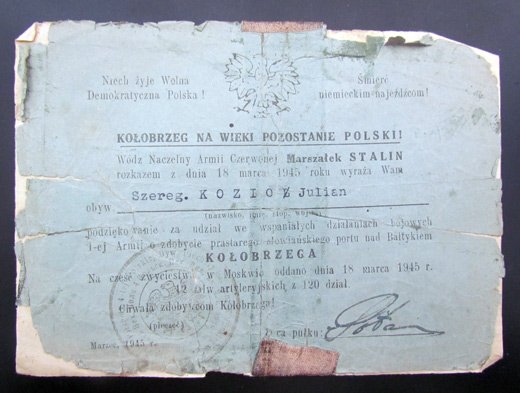 Niech żyje Wolna
Demokratyczna Polska!
Śmierć
niemieckim najeźdźcom!
KOŁOBRZEG NA WIEKI POZOSTANIE POLSKI!
Wódz Naczelny Armii Czerwonej Marszałek STALIN
rozkazem z dnia 18 marca 1945 roku wyraża Wam
Szereg. KOZIOŁ Julian
obyw
(nazwisko, imię, stop. wojsk.)
podziękowanie za udział we wspaniałych działaniach bojowych
1-ej Armii o zdobycie prastarego słowiańskiego portu nad Bałtykiem
KOŁOBRZEGA
Na cześć zwycięstwa w Moskwie oddano dnia 18 marca 1945 r.
12 salw artyleryjskich z 120 dział.
Chwała zdobywcom Kołobrzega!
(pieczęć)
D-ca pułku:
Marzec, 1945 r.